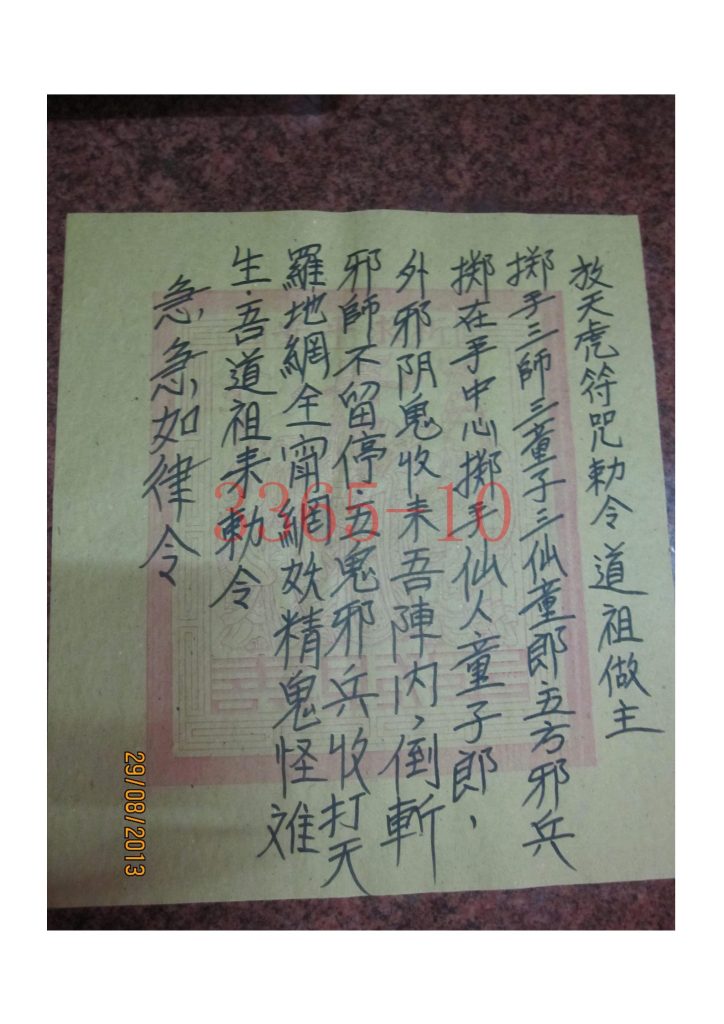 放天虎符咒勅令道祖做主
掷手三師三童子三仙童郎五方邪兵
掷在手中心掷手仙人童子郎，
外邪阴鬼收来吾陣内，倒斬
邪師不留停．五鬼邪兵收打天
羅地網全甯網妖精鬼怪难
生．吾道祖来勅令
急急如律令
3365-10
29/08/2013